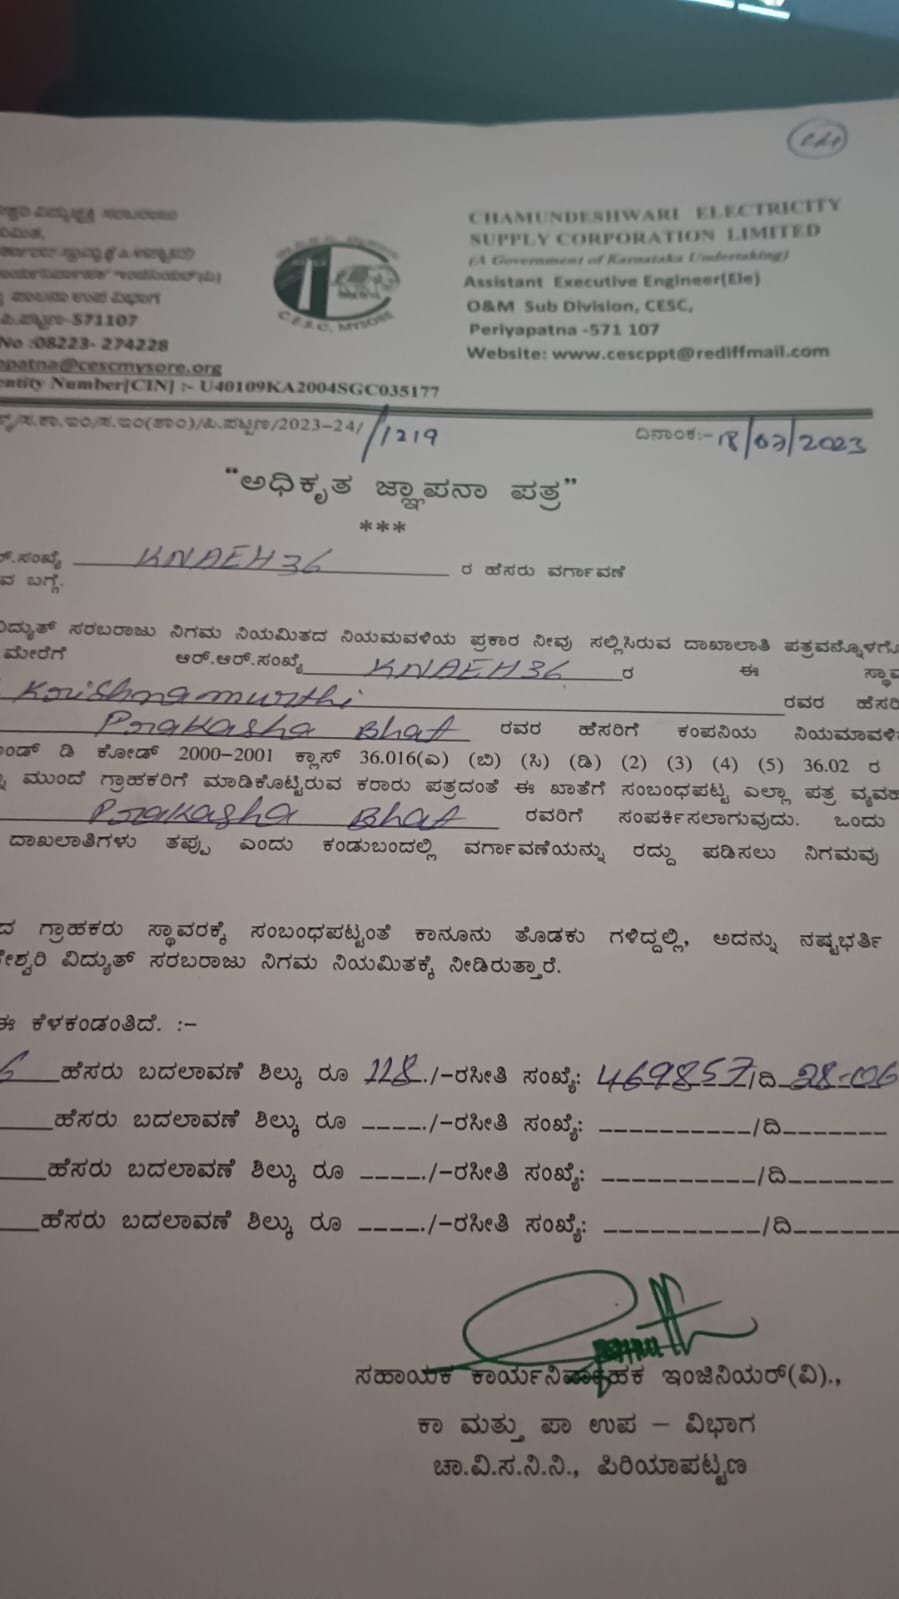 CHAMUNDESHWARI ELECTRICITY
SUPPLY CORPORATION LIMITED
(A Government of Karnataka Undertaking)
Assistant Executive Engineer(Ele)
O&M Sub Division, CESC,
Periyapatna -571 107
Website: www.cescppt@rediffmail.com
ವಿದ್ಯುಚ್ಛಕ್ತಿ ಸರಬರಾಜು
ಪಾಲನಾ ಉಪ ವಿಭಾಗ
ಪಿ.ಪಟ್ಟಣ-571107
No :08223- 274228
patna@cescmysore.org
entity Number[CIN] :- U40109KA2004SGC035177
C.E.S.C, MYSORE
/ಸ.ಕಾ.ಇಂ/ಸ.ಇಂ(ತಾಂ)/ಪಿ.ಪಟ್ಟಣ/2023-24/ /1219
ದಿನಾಂಕ:-18/07/2023
"ಅಧಿಕೃತ ಜ್ಞಾಪನಾ ಪತ್ರ"
***
ರ್.ಸಂಖ್ಯೆ KNAEH36 ರ ಹೆಸರು ವರ್ಗಾವಣೆ
ವ ಬಗ್ಗೆ.
ವಿದ್ಯುತ್ ಸರಬರಾಜು ನಿಗಮ ನಿಯಮಿತದ ನಿಯಮವಳಿಯ ಪ್ರಕಾರ ನೀವು ಸಲ್ಲಿಸಿರುವ ದಾಖಾಲಾತಿ ಪತ್ರವನ್ನೊಳಗೊ
ಮೇರೆಗೆ ಆರ್.ಆರ್.ಸಂಖ್ಯೆ KNAEH36 ರ ಈ ಸ್ಥಾವ
Krishnamurthi ರವರ ಹೆಸರಿ
Prakasha Bhat ರವರ ಹೆಸರಿಗೆ ಕಂಪನಿಯ ನಿಯಮಾವಳಿ
ಂಡ್ ಡಿ ಕೋಡ್ 2000-2001 ಕ್ಲಾಸ್ 36.016(ಎ) (ಬಿ) (ಸಿ) (ಡಿ) (2) (3) (4) (5) 36.02 ರ
ಮುಂದೆ ಗ್ರಾಹಕರಿಗೆ ಮಾಡಿಕೊಟ್ಟಿರುವ ಕರಾರು ಪತ್ರದಂತೆ ಈ ಖಾತೆಗೆ ಸಂಬಂಧಪಟ್ಟ ಎಲ್ಲಾ ಪತ್ರ ವ್ಯವಹ
Prakasha Bhat ರವರಿಗೆ ಸಂಪರ್ಕಿಸಲಾಗುವುದು. ಒಂದು
ದಾಖಲಾತಿಗಳು ತಪ್ಪು ಎಂದು ಕಂಡುಬಂದಲ್ಲಿ ವರ್ಗಾವಣೆಯನ್ನು ರದ್ದು ಪಡಿಸಲು ನಿಗಮವು
ದ ಗ್ರಾಹಕರು ಸ್ಥಾವರಕ್ಕೆ ಸಂಬಂಧಪಟ್ಟಂತೆ ಕಾನೂನು ತೊಡಕು ಗಳಿದ್ದಲ್ಲಿ, ಅದನ್ನು ನಷ್ಟಭರ್ತಿ
ೇಶ್ವರಿ ವಿದ್ಯುತ್ ಸರಬರಾಜು ನಿಗಮ ನಿಯಮಿತಕ್ಕೆ ನೀಡಿರುತ್ತಾರೆ.
ಈ ಕೆಳಕಂಡಂತಿದೆ. :-
6 ಹೆಸರು ಬದಲಾವಣೆ ಶಿಲ್ಕು ರೂ 118./-ರಸೀತಿ ಸಂಖ್ಯೆ: 469857/ದಿ 28-06
ಹೆಸರು ಬದಲಾವಣೆ ಶಿಲ್ಕು ರೂ ____./-ರಸೀತಿ ಸಂಖ್ಯೆ: __________/ದಿ_______
ಹೆಸರು ಬದಲಾವಣೆ ಶಿಲ್ಕು ರೂ ____./-ರಸೀತಿ ಸಂಖ್ಯೆ: __________/ದಿ_______
ಹೆಸರು ಬದಲಾವಣೆ ಶಿಲ್ಕು ರೂ ____./-ರಸೀತಿ ಸಂಖ್ಯೆ: __________/ದಿ_______
ಸಹಾಯಕ ಕಾರ್ಯನಿರ್ವಾಹಕ ಇಂಜಿನಿಯರ್(ವಿ).,
ಕಾ ಮತ್ತು ಪಾ ಉಪ – ವಿಭಾಗ
ಚಾ.ವಿ.ಸ.ನಿ.ನಿ., ಪಿರಿಯಾಪಟ್ಟಣ